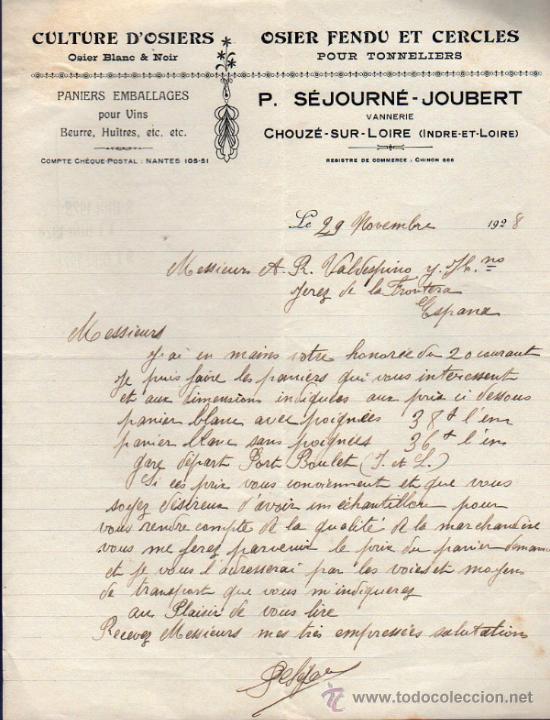 CULTURE D'OSIERS
Osier Blanc & Noir
OSIER FENDU ET CERCLES
POUR TONNELIERS
PANIERS EMBALLAGES
pour Vins
Beurre, Huîtres, etc. etc.
COMPTE CHÈQUE-POSTAL : NANTES 105-51
P. SÉJOURNÉ-JOUBERT
VANNERIE
CHOUZÉ-SUR-LOIRE (INDRE-ET-LOIRE)
REGISTRE DE COMMERCE : CHINON 666
Le 29 Novembre 1928
Messieurs A. R. Valdespino y Hno
Jerez de la Frontera
Espana
Messieurs
J'ai en mains votre honorée du 20 courant
Je puis faire les paniers qui vous interessent
et aux dimension indiquées aux prix ci dessous
panier blanc avec poignées 38 f l'un
panier blanc sans poignées 36 f l'un
gare départ Port Boulet (I. et L.)
Si ces prix vous conviennent et que vous
soyez désireux d'avoir un échantillon pour
vous rendre compte de la qualité de la marchandise
vous me ferez parvenir le prix du panier demandé
et je vous l'adresserai par les voies et moyens
de transport que vous m'indiquerez
au Plaisir de vous lire
Recevez Messieurs mes très empressées salutation
www.todocoleccion.net